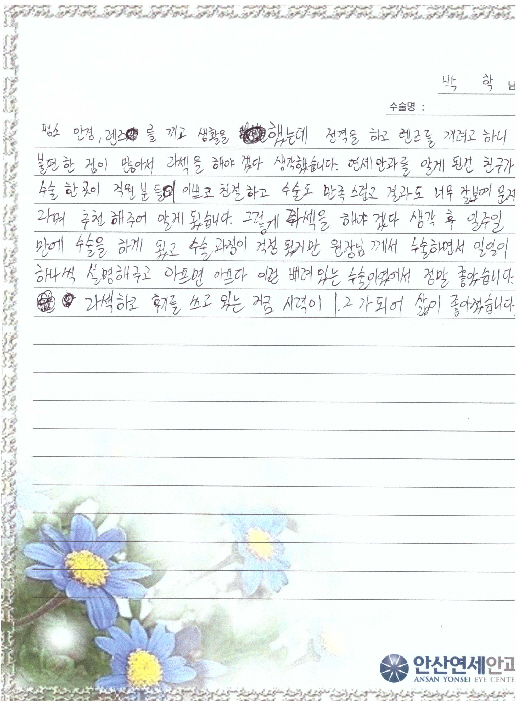 박 학 님
수술명 :
평소 안경, 렌즈를 끼고 생활을 했는데 전역을 하고 렌즈를 끼려고 하니
불편한 점이 많아서 라섹을 해야 겠다 생각했습니다. 연세안과를 알게 된건 친구가
수술 한 곳이 직원분들이 이쁘고 친절하고 수술도 만족스럽고 결과도 너무
라며 추천 해주어 알게 됐습니다. 그렇게 라섹을 해야 겠다 생각 후 일주일
만에 수술을 하게 됐고 수술 과정이 걱정 됐지만 원장님 께서 수술하면서 일일이
하나씩 설명해주고 아프면 아프다 이런 배려 있는 수술이였어서 정말 좋았습니다.
라섹하고 후기를 쓰고 있는 지금 시력이 1.2가 되어 삶이 좋아졌습니다.
안산연세안과
ANSAN YONSEI EYE CENTE